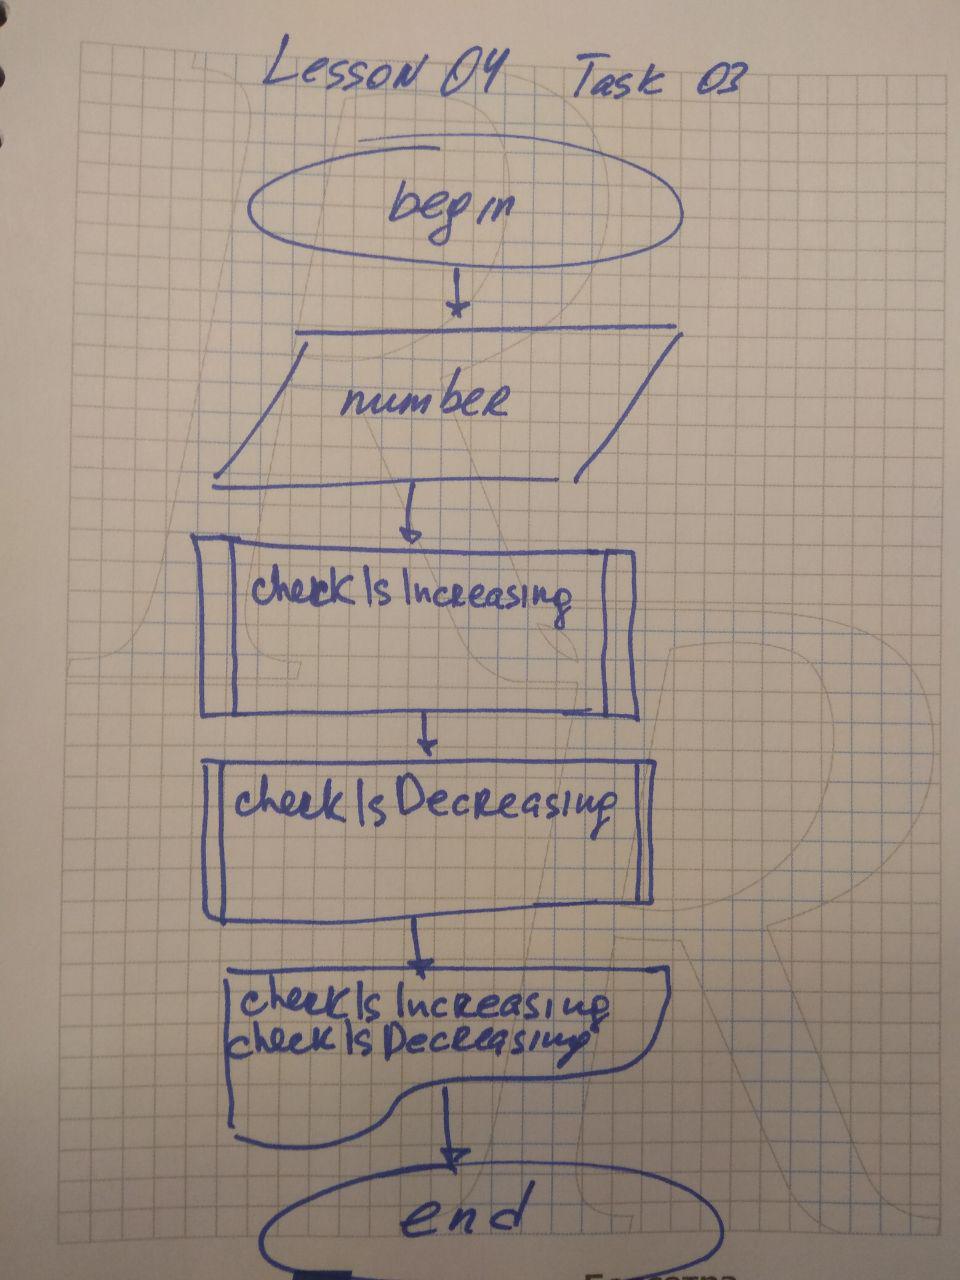 Lesson 04 Task 03
begin
number
checkIsIncreasing
checkIsDecreasing
checkIsIncreasing
checkIsDecreasing
end